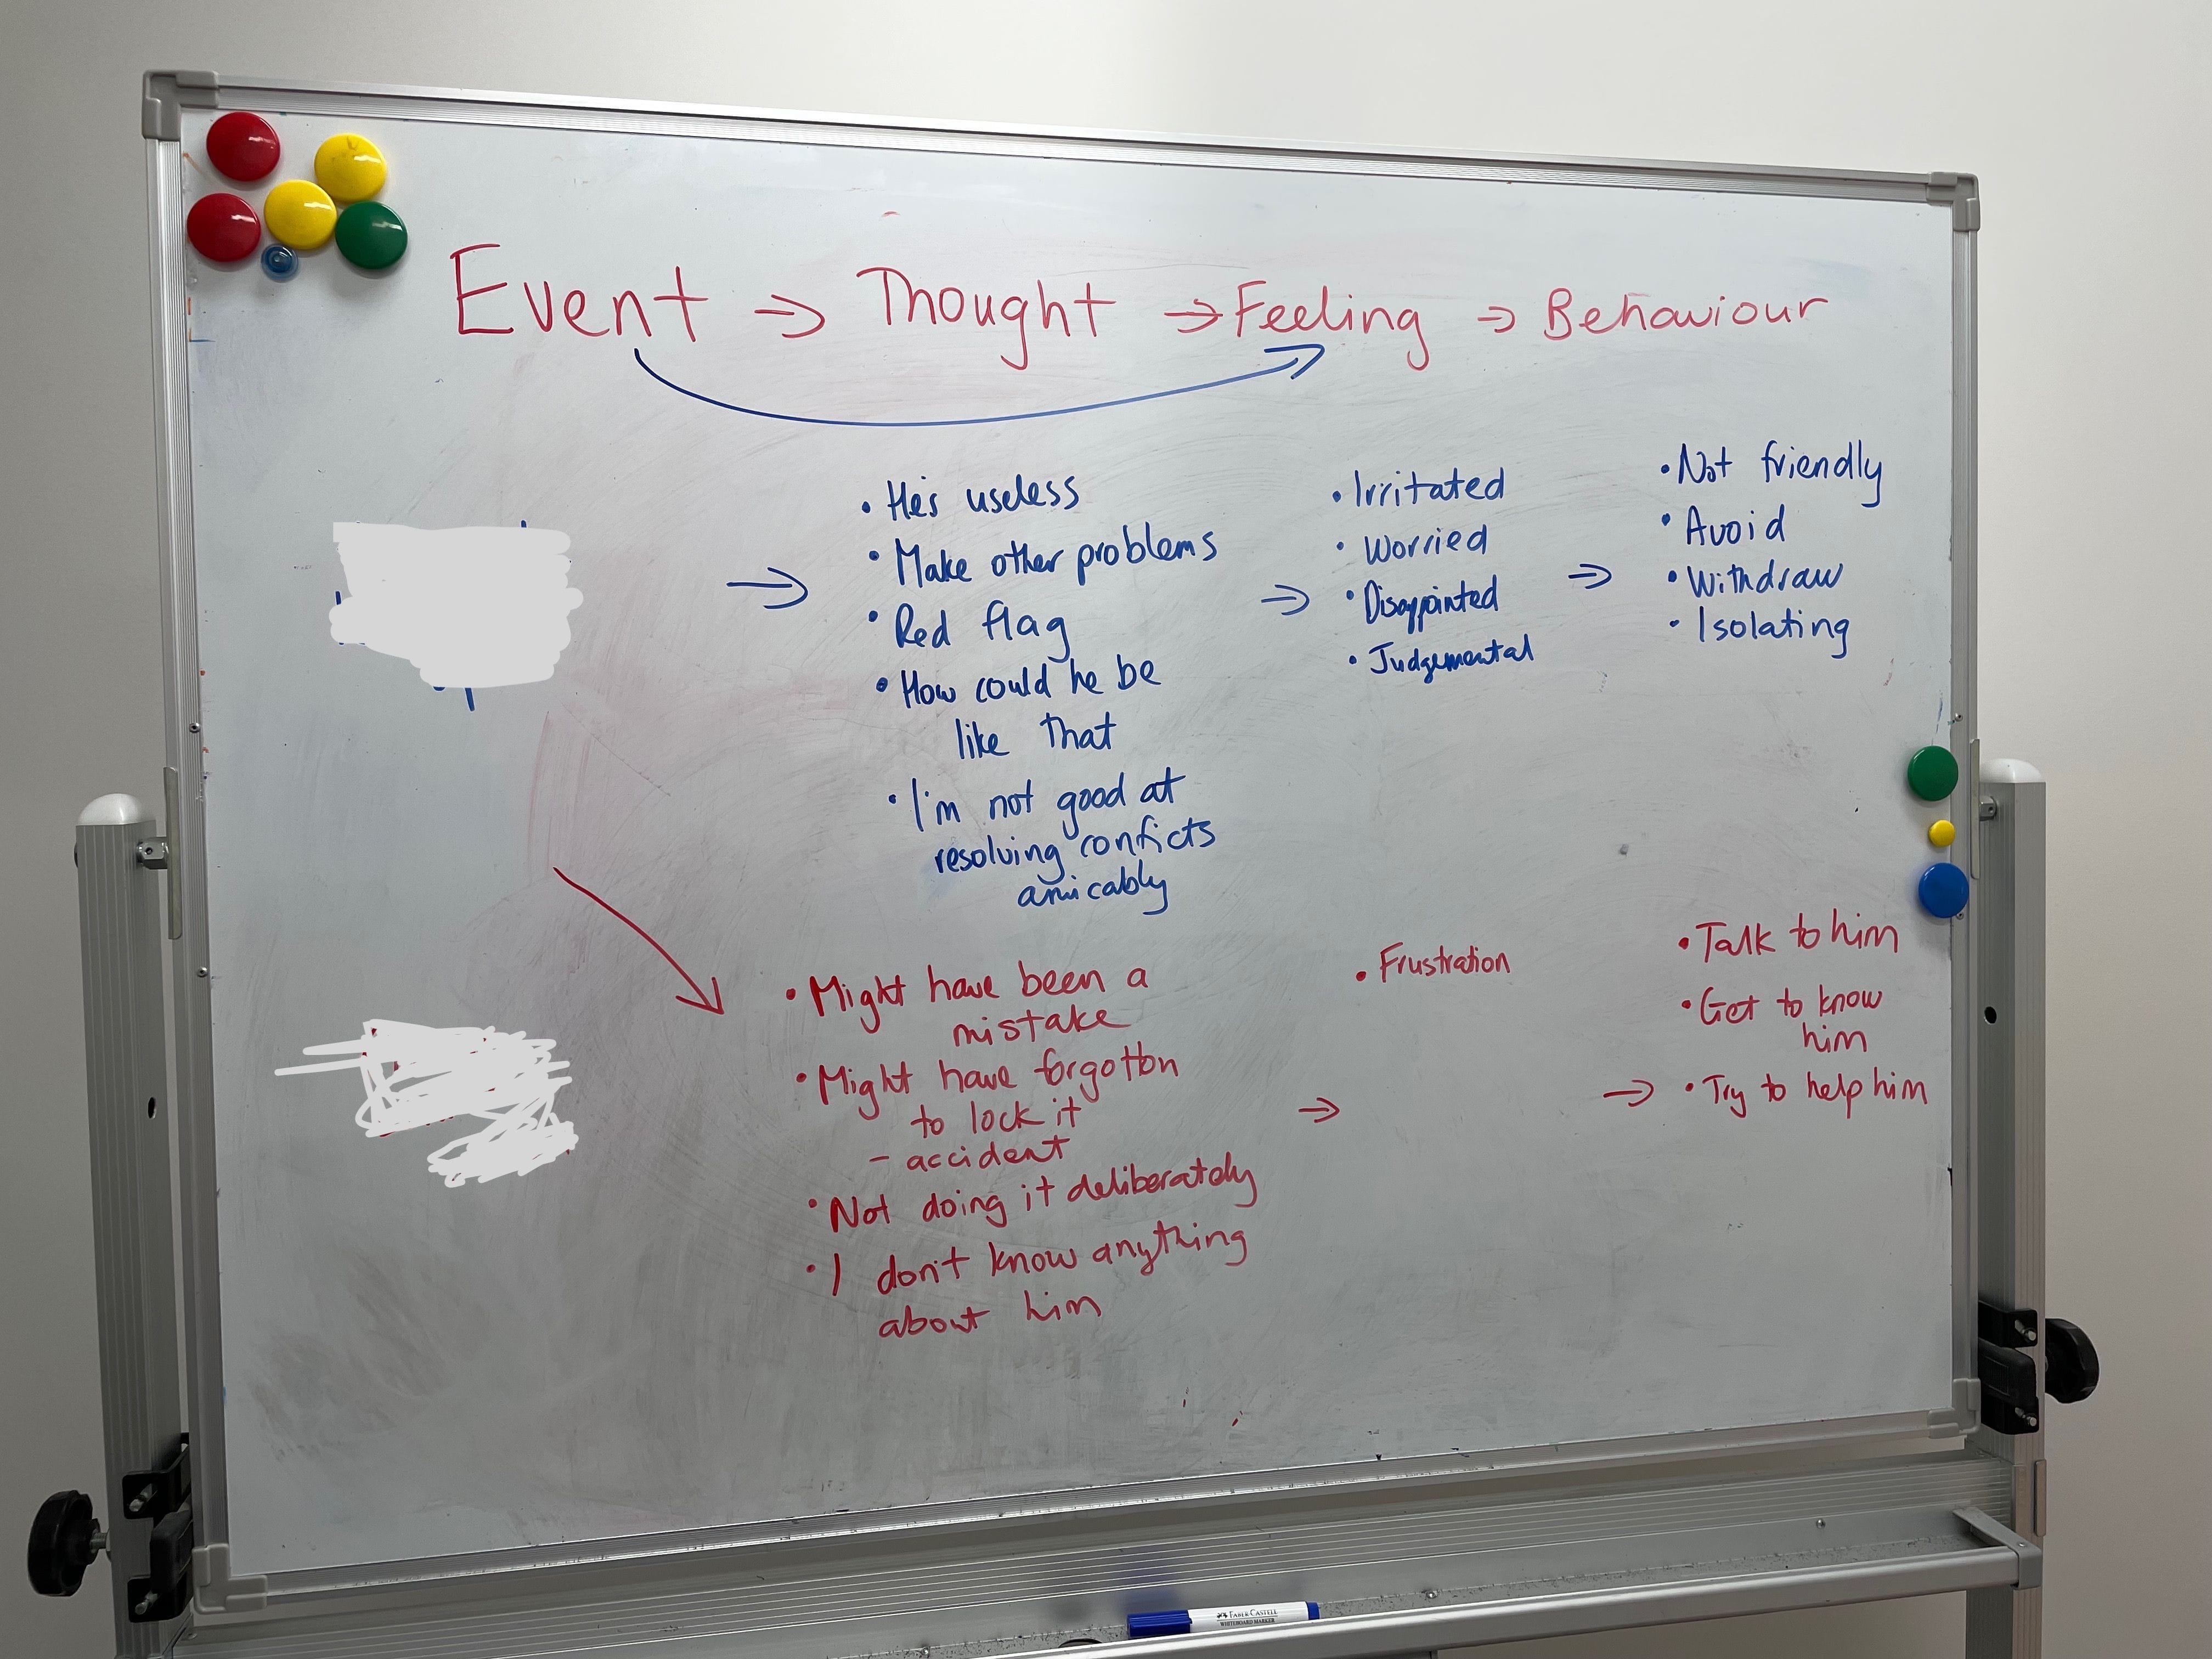 Event → Thought → Feeling → Behaviour
→
• He's useless
• Make other problems
• Red flag
• How could he be
like that
• I'm not good at
resolving conficts
amicably
→
• Irritated
• Worried
• Disappointed
• Judgemental
→
• Not friendly
• Avoid
• Withdraw
• Isolating
• Might have been a
mistake
• Might have forgotton
to lock it
- accident
• Not doing it deliberately
• I don't know anything
about him
→
• Frustration
→
• Talk to him
• Get to know
him
• Try to help him
FABER-CASTELL
WHITEBOARD MARKER